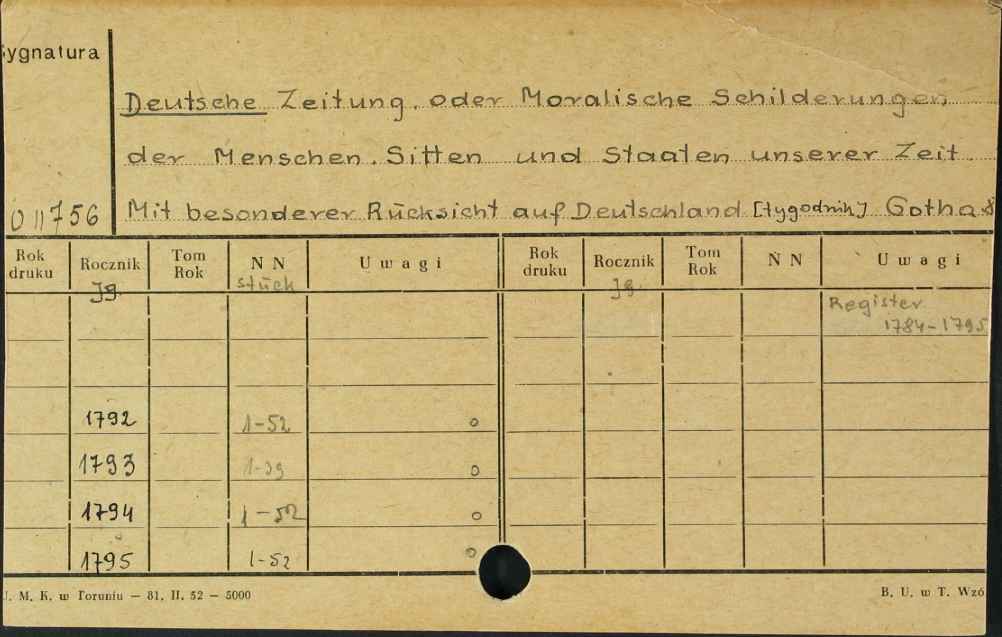 Sygnatura
Deutsche Zeitung, oder Moralische Schilderungen
der Menschen, Sitten und Staaten unserer Zeit.
O II 756 Mit besonderer Rücksicht auf Deutschland [tygodnik] Gotha
Rok druku Rocznik Tom Rok N N Uwagi Rok druku Rocznik Tom Rok N N Uwagi
Jg. Stück Jg.
Register
1784-1795
1792 1-52 o
1793 1-39 o
1794 1-52 o
1795 1-52 o
U. M. K. w Toruniu — 81, II, 52 — 5000 B. U. w T. Wzó